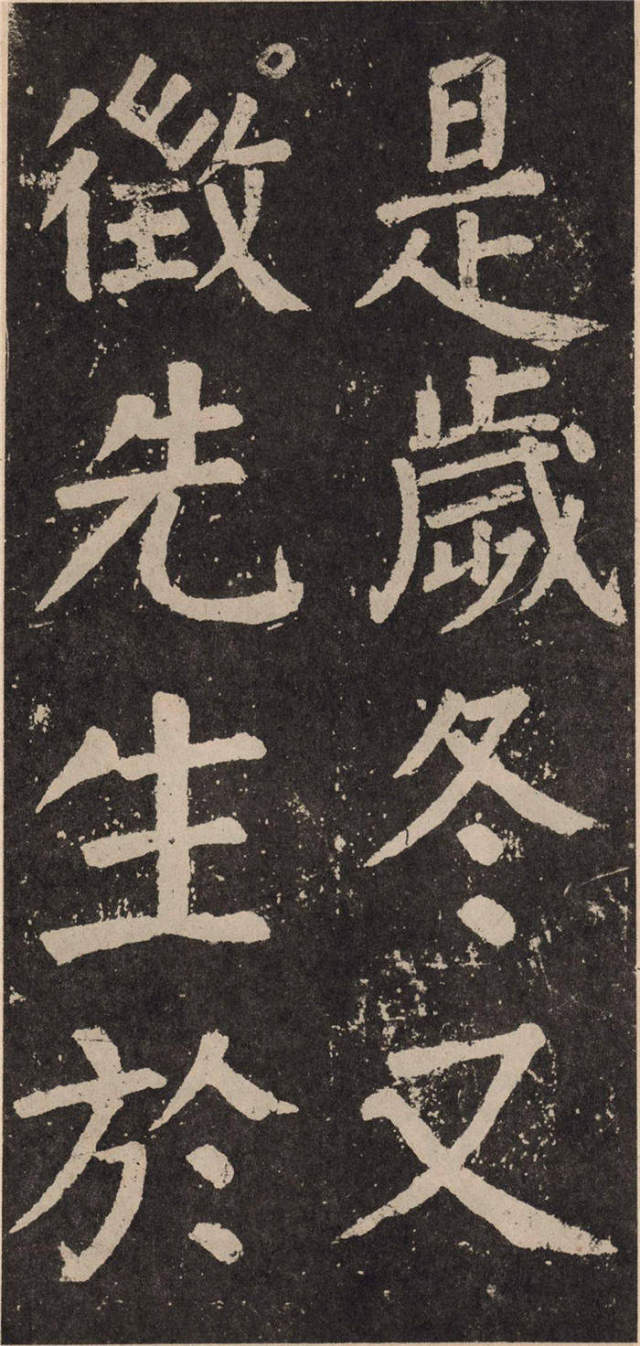 是歲冬又
徵先生於